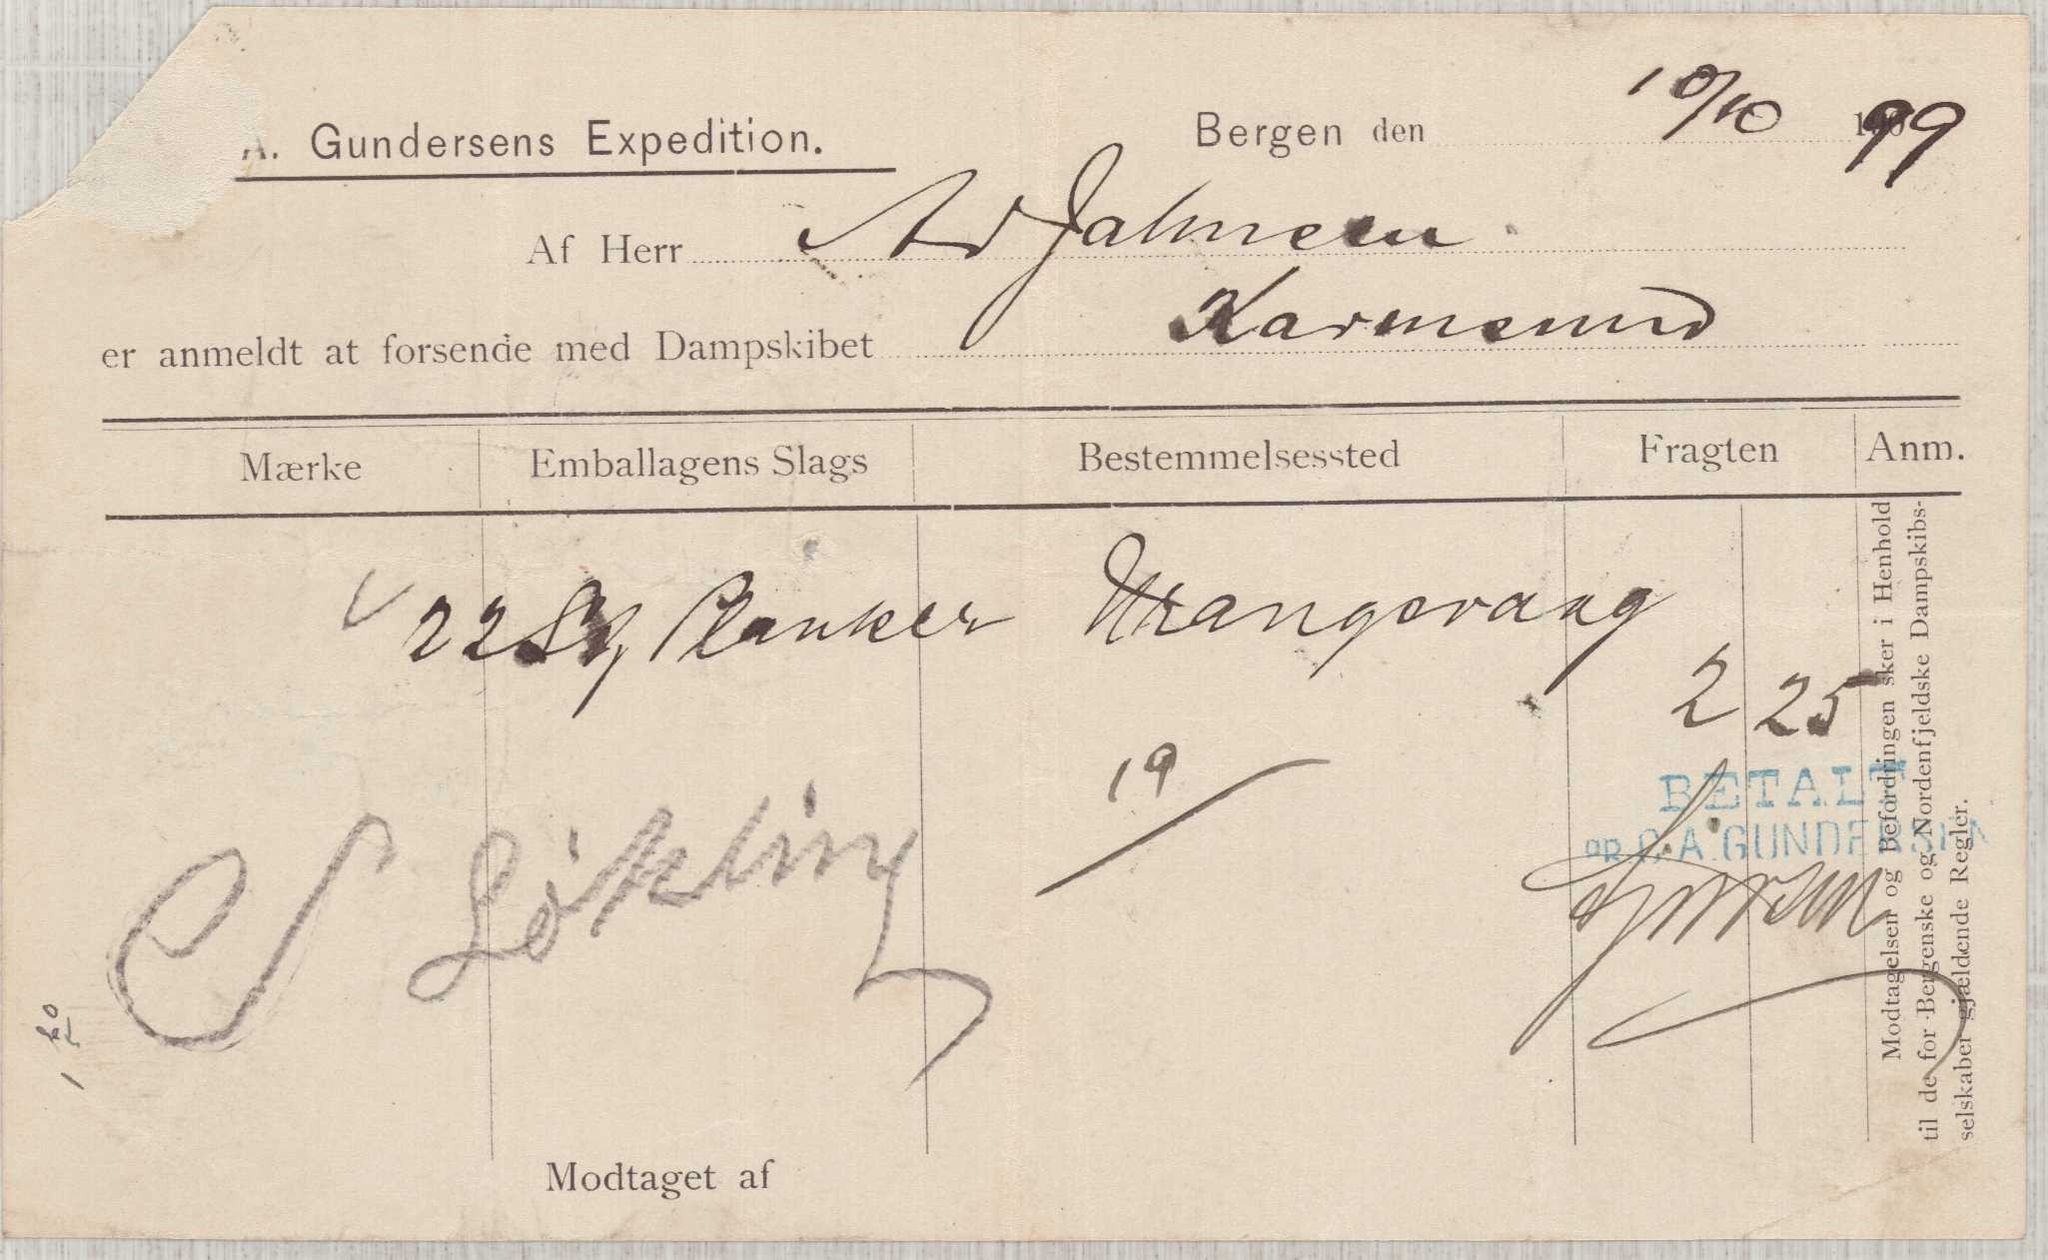 A. Gundersens Expedition.
Bergen den 10/10 1899
Af Herr Ad Jahnsen
er anmeldt at forsende med Dampskibet Karmsund
Mærke Emballagens Slags Bestemmelsessted Fragten Anm.
22 Planker Urangsvaag 2 25
19
BETALT
pr C. A. GUNDERSEN
Modtagelsen og Befordringen sker i Henhold
til de for Bergenske og Nordenfjeldske Dampskibs-
selskaber gjældende Regler.
Modtaget af